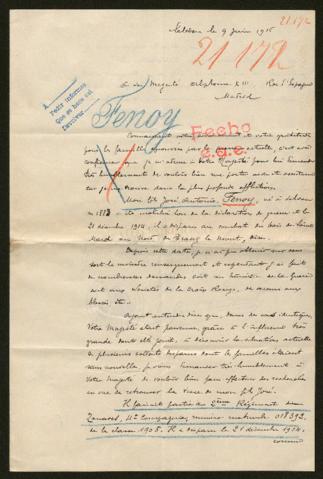 21.172
le 9 Juin 1915
21172
A Sa Majesté Alphonse XIII, Roi d'Espagne
Madrid
Pedir informes
Fenoy
Fecho
Connaissant votre
pour les familles
que je m'adresse à Votre Majesté pour lui demander
très humblement de vouloir bien me
car je me trouve dans la plus profonde affliction.
Mon fils José Antonio Fenoy, né à
en 1883 mobilisé lors de la déclaration de guerre et le
21 décembre 1914, il a disparu au combat du bois de Saint
Mard au Nord de Tracy le Mont, Oise.
Depuis cette date, je n'ai pu obtenir sur son
sort le moindre renseignement et cependant, j'ai fait
de nombreuses demandes soit au Ministre de la Guerre
soit aux Sociétés de la Croix Rouge, de secours aux
blessés etc.
Ayant entendu dire que, dans des cas identiques,
Votre Majesté était parvenue, grâce à l'influence très
grande dont Elle jouit, à découvrir la situation actuelle
de plusieurs soldats disparus dont les familles étaient
sans nouvelles, je viens demander très humblement à
Votre Majesté de vouloir bien faire effectuer des recherches
en vue de retrouver la trace de mon fils José.
Il faisait partie du 2ème Régiment de
Zouaves, 4e Compagnie, numéro matricule 018392
de la classe 1903. Il a disparu le 21 décembre 1914
comme